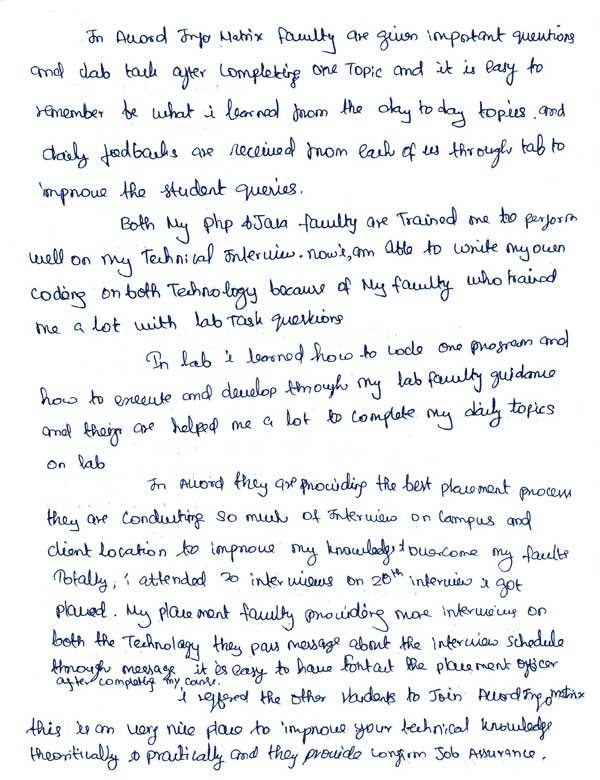 In Accord Info Matrix faculty are given important questions
and lab task after completing one Topic and it is easy to
remember be what i learned from the day to day topics. and
daily feedbacks are received from each of us through tab to
improve the student queries.
Both My Php & Java faculty are Trained me to perform
well on my Technical Interview. now i, am able to write my own
Coding on both Technology because of My faculty who trained
me a lot with lab Task questions
In lab i learned how to code one program and
how to execute and develop through my lab faculty guidance
and their are helped me a lot to complete my daily topics
on lab
In Accord they are providing the best placement process
they are conducting so much of Interview on Campus and
client location to improve my knowledge & overcome my faults
Totally, i attended 20 interviews on 20th interview i got
placed. My placement faculty providing more interviews on
both the Technology they pass message about the interview schedule
through message it is easy to have contact the placement officer
after completing my course.
I reffered the other students to Join Accord Info matrix
this is an very nice place to improve your technical knowledge
theoritically & practically and they provide confirm Job Assurance.